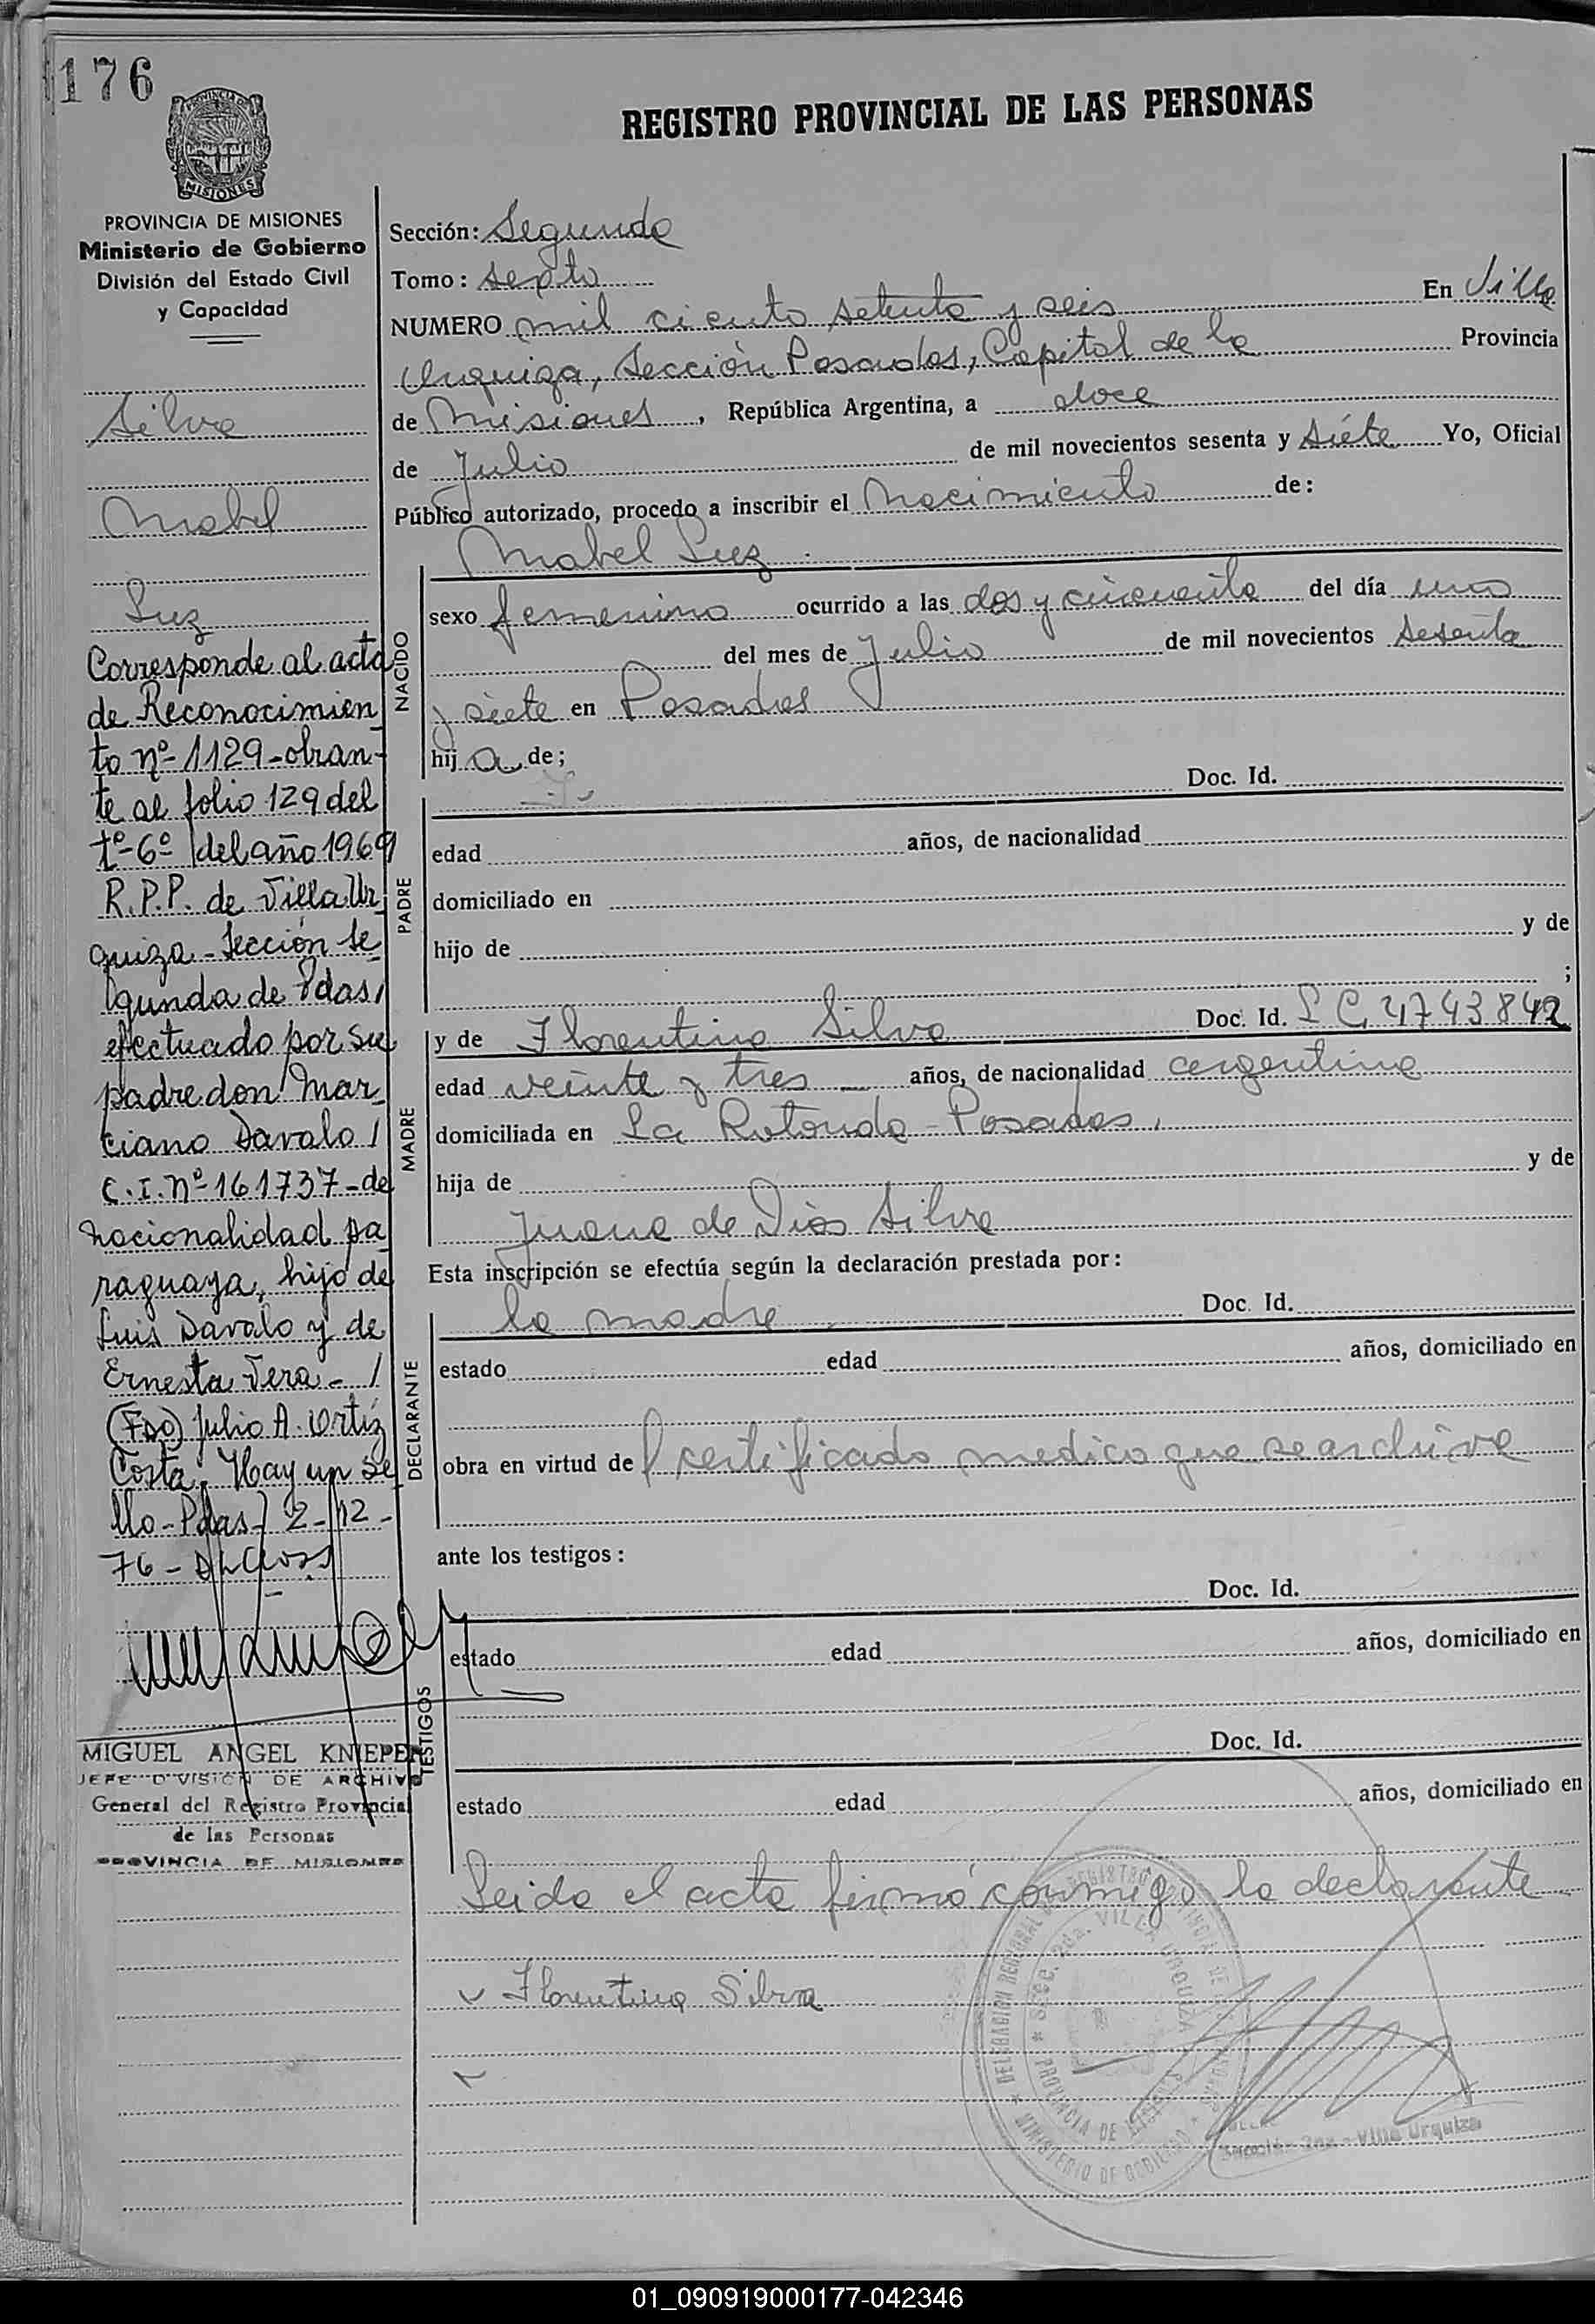 1176
REGISTRO PROVINCIAL DE LAS PERSONAS
PROVINCIA DE
MISIONES
PROVINCIA DE MISIONES
Ministerio de Gobierno
División del Estado Civil
y Capacidad
Silva
Mabel
Luz
Corresponde al acta
de Reconocimien
to nº 1129-obran-
te al folio 129 del
tº-6º/del año 1969
R.P.P. de Villa Ur
quiza-Sección Se
gunda de Pdas/
efectuado por su
padre don Mar
ciano Davalo/
C.I. Nº 161737-de
nacionalidad pa
raguaya, hijo de
Luis Davalo y de
Ernesta Vera-/
(Fdo) Julio A. Ortiz
Costa. Hay un se
llo-Pdas-/2-/12-
76-
MIGUEL ANGEL KNIEPER
JEFE DIVISION DE ARCHIVO
General del Registro Provincial
de las Personas
PROVINCIA DE MISIONES
Sección: Segunda
Tomo: septo
NUMERO mil ciento setenta y seis En Villa
Urquiza, Sección Posadas, Capital de la Provincia
de Misiones, República Argentina, a doce
de Julio de mil novecientos sesenta y siéte Yo, Oficial
Público autorizado, procedo a inscribir el Nacimiento de:
Mabel Luz
NACIDO
sexo femenino ocurrido a las dos y cincuenta del día uno
del mes de Julio de mil novecientos sesenta
y siete en Posadas
hija de;
PADRE
Doc. Id.
edad años, de nacionalidad
domiciliado en
hijo de y de
;
MADRE
y de Florentina Silva Doc. Id. L C. 4743842
edad veinte y tres años, de nacionalidad argentina
domiciliada en La Rotonda - Posadas,
hija de y de
Juana de Dios Silva
Esta inscripción se efectúa según la declaración prestada por:
DECLARANTE
la madre Doc. Id.
estado edad años, domiciliado en
obra en virtud del certificado medico que se archiva
ante los testigos:
TESTIGOS
Doc. Id.
estado edad años, domiciliado en
Doc. Id.
estado edad años, domiciliado en
Leida el acta firmó conmigo la declarante
Florentina Silva
DELEGACION REGIONAL DEL REGISTRO PROVINCIAL DE LAS PERSONAS
SECC. 2da. VILLA URQUIZA
PROVINCIA DE MISIONES
MINISTERIO DE GOBIERNO
Sección 2da - Villa Urquiza
01_090919000177-042346